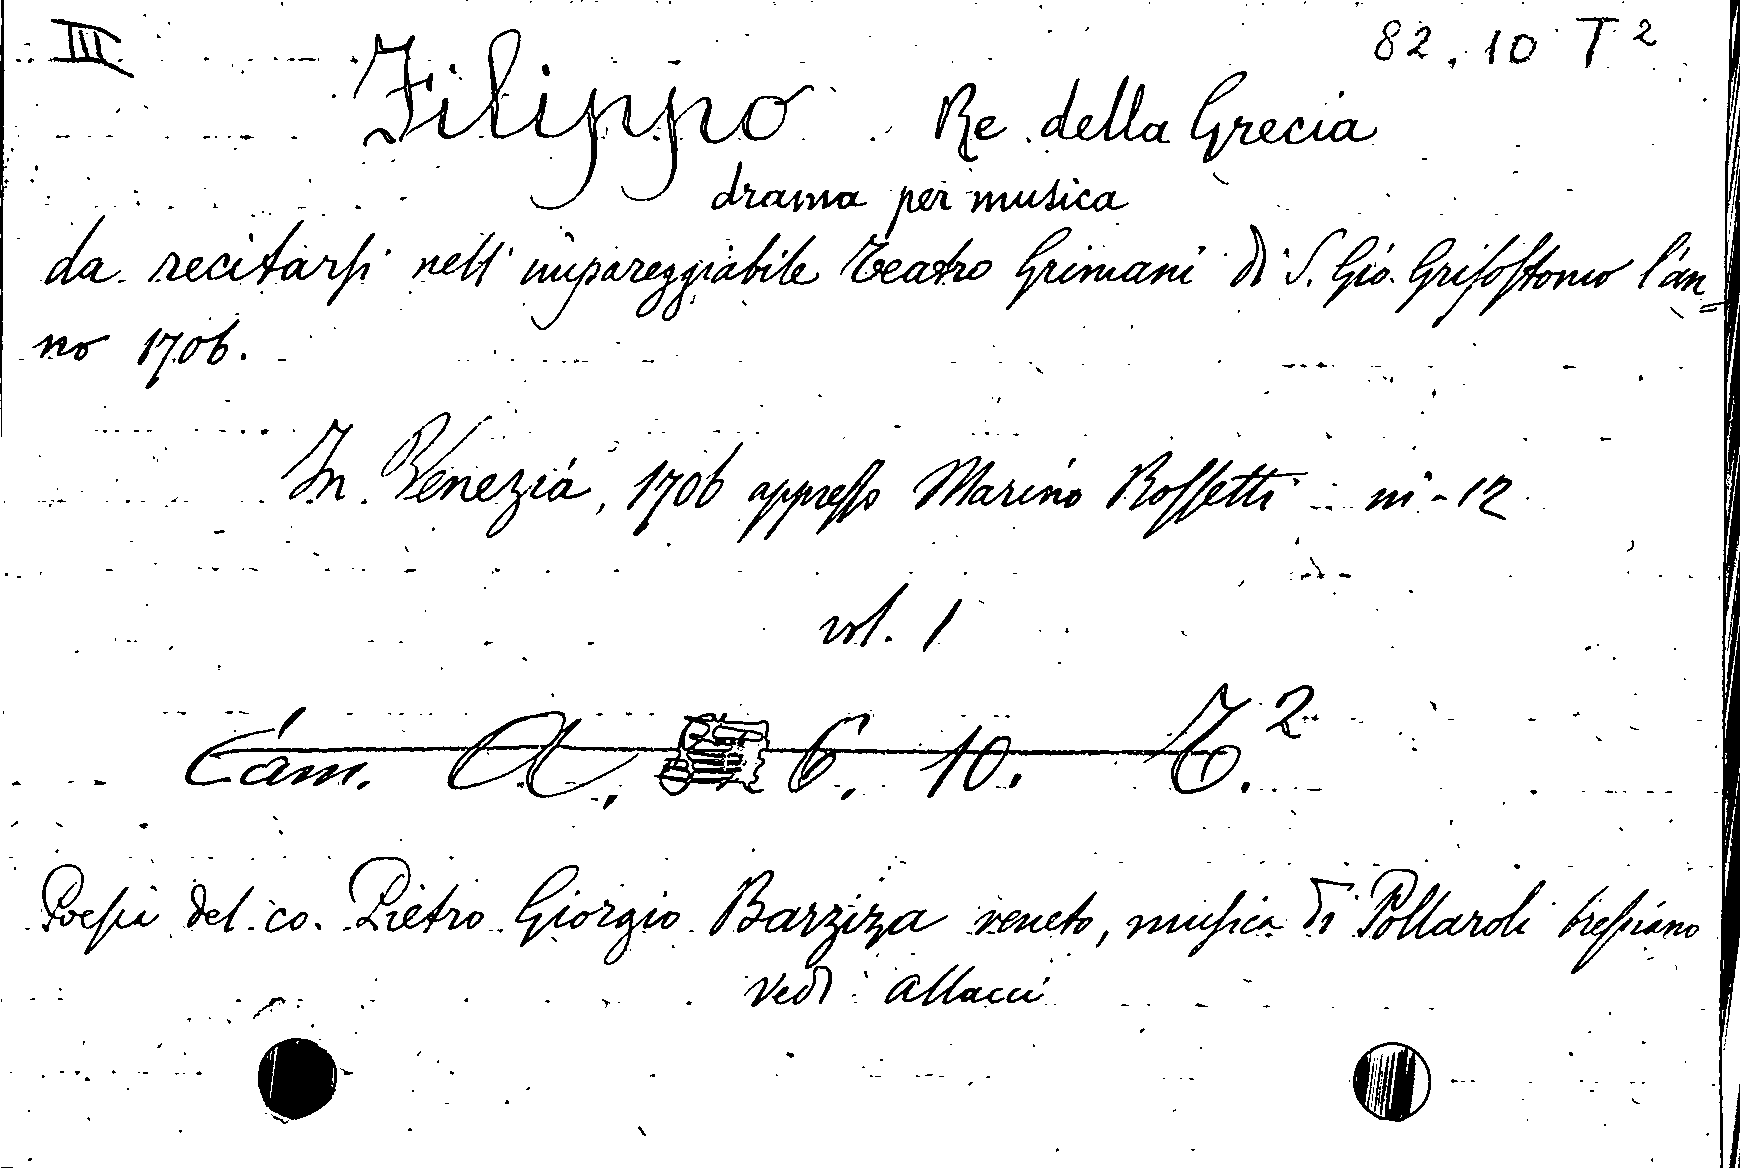 III 82.10 T²
Filippo Re della Grecia
drama per musica
da recitarsi nell' impareggiabile Teatro Grimani di S. Gio. Grisostomo l'an=
no 1706.
In Venezia, 1706 appresso Marino Rossetti in-12
vol. 1
Cam. A. 6. 10. T.²
Poesia del co. Pietro Giorgio Barziza veneto, musica di Pollaroli bressiano
vedi Allacci